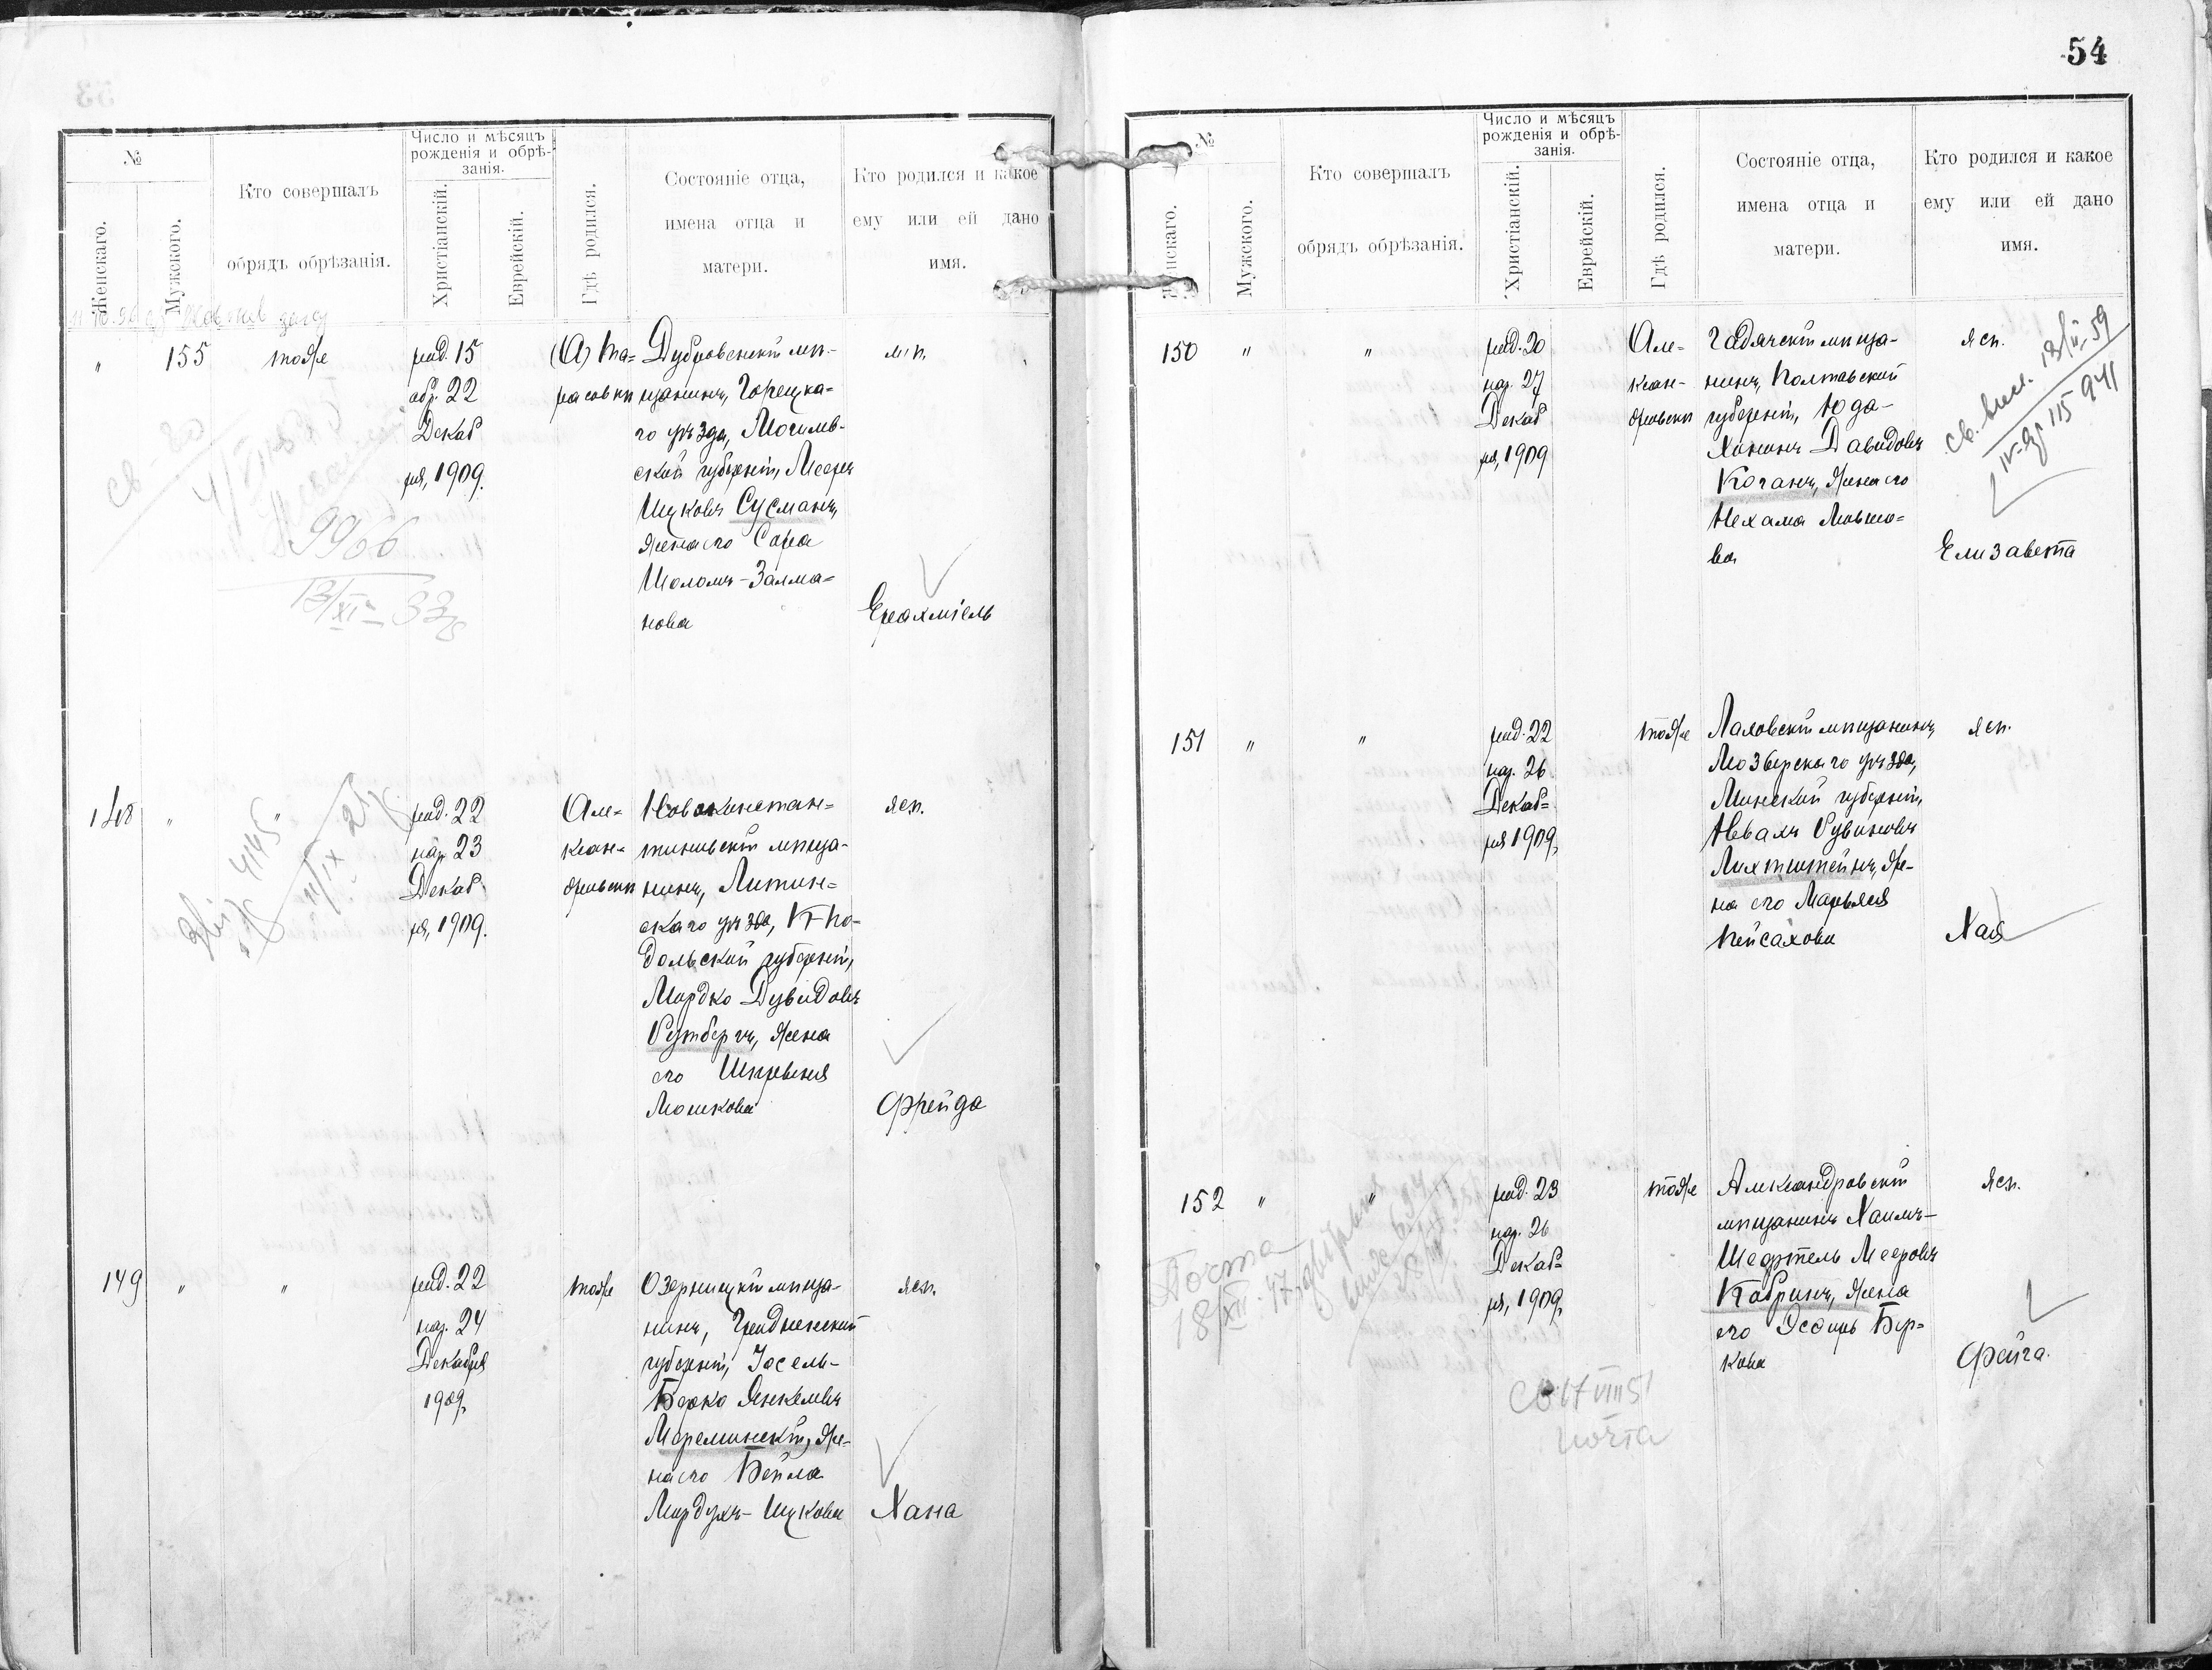 54
№
Женскаго.
Мужского.
Кто совершалъ
обрядъ обрѣзанія.
Число и мѣсяцъ
рожденія и обрѣ-
занія.
Христіанскій.
Еврейскій.
Гдѣ родился.
Состояніе отца,
имена отца и
матери.
Кто родился и какое
ему или ей дано
имя.
" 155 тоже
род. 15
обр. 22
Декаб
ря, 1909.
Дубровенскій мѣ-
щанинъ, Горецка-
го уѣзда, Могилев-
ской губерніи, Мееръ
Ицковъ Сусманъ,
жена его Сора
Шоломъ-Залма-
нова
м. п.
Ерахміель
9966
13/XI-33
148 " "
род. 22
нар. 23
Декаб
ря, 1909.
Але-
ксан-
дровскъ
Новоконстан-
тиновскій мѣща-
нинъ, Литин-
скаго уѣзда, По-
дольской губерніи,
Мордко Дувидовъ
Рутбергъ, жена
его Шпринця
Мошкова
жсп.
Фрейда
4145
149 " "
род. 22
нар. 24
Декабря
1909,
тоже
Озерницкій мѣща-
нинъ, Гродненской
губерніи, Іосель-
Берко Янкелевъ
Мереминскій, же-
на его Бейла
Мордухъ-Ицкова
жсп.
Хана
№
Женскаго.
Мужского.
Кто совершалъ
обрядъ обрѣзанія.
Число и мѣсяцъ
рожденія и обрѣ-
занія.
Христіанскій.
Еврейскій.
Гдѣ родился.
Состояніе отца,
имена отца и
матери.
Кто родился и какое
ему или ей дано
имя.
150 " "
род. 20
нар. 27
Декаб
ря, 1909
Але-
ксан-
дровскъ
Гадячскій мѣща-
нинъ, Полтавской
губерніи, Юда-
Хононъ Давидовъ
Коганъ, жена его
Нехама Мовшо-
ва
жсп.
Елизавета
151 " "
род. 22
нар. 26
Декаб-
ря 1909,
тоже
Лаховскій мѣщанинъ,
Мозырскаго уѣзда,
Минской губерніи,
Невахъ Рувиновъ
Лихтштейнъ, же-
на его Марьяся
Пейсахова
жсп.
Хая
152 " "
род. 23
нар. 26
Декаб-
ря, 1909,
тоже
Александровскій
мѣщанинъ Хаимъ-
Шефтель Мееровъ
Кабринъ, жена
его Эсфирь Бер-
кова
жсп.
Фейга.
Почта
18/XII-47
Св 17 VIII 51
почта